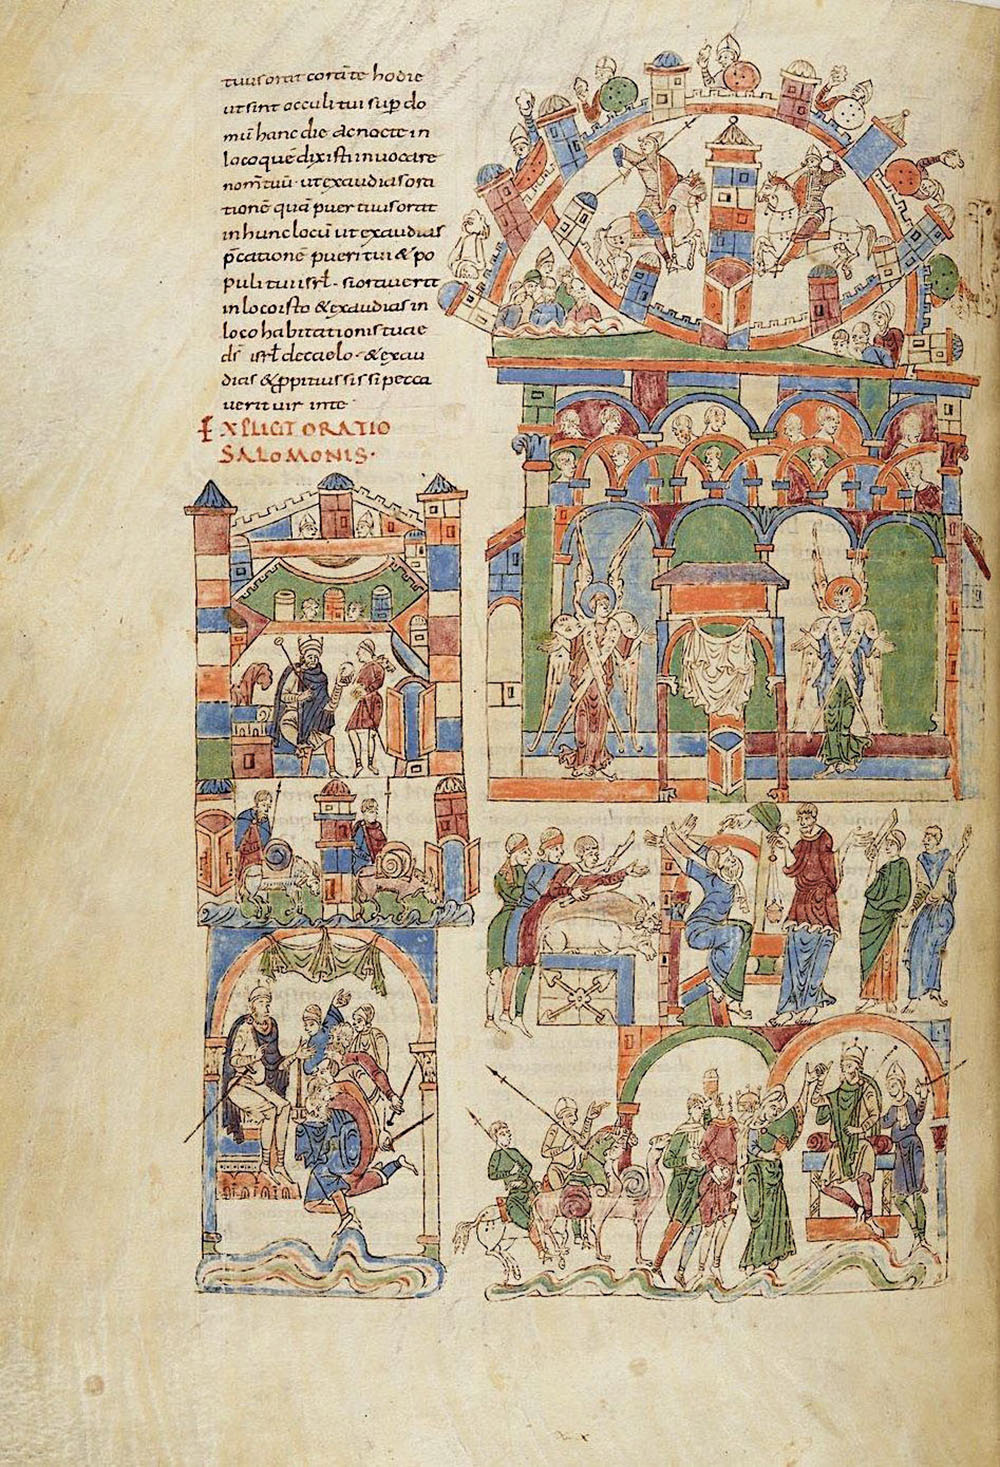 tuus orat corā te hodie
ut sint occuli tui sup do
mū hanc die ac nocte in
loco quē dixisti invocare
nom̄ tuū · ut exaudias ora
tionē quā puer tuus orat
in hunc locū ut exaudias
p̄cationē pueri tui & po
puli tui isrł · si oraverit
in loco isto & exaudias in
loco habitationis tuae
d̄s isrł de caelo · & exau
dias & ppitius sis si pecca
verit vir in te
EXPLICIT ORATIO
SALOMONIS·